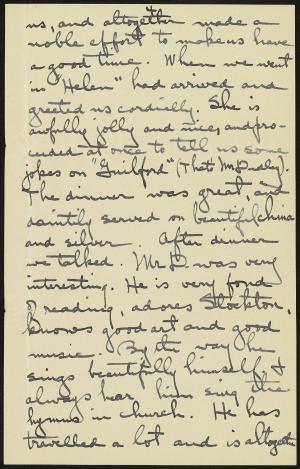 us, and altogether made a
noble effort to make us have
a good time. When we went
in "Helen" had arrived and
greeted us cordially. She is
awfully jolly and nice, and pro-
ceeded at once to tell us some
jokes on "Guilford" (That's Mr. Dudley).
The dinner was great, and
daintily served on beautiful china
and silver. After dinner
we talked. Mr D. was very
interesting. He is very fond
of reading, adores Stockton,
knows good art and good
music. By the way he
sings beautifully himself, &
always hear him sing the
hymns in church. He has
travelled a lot and is altogether